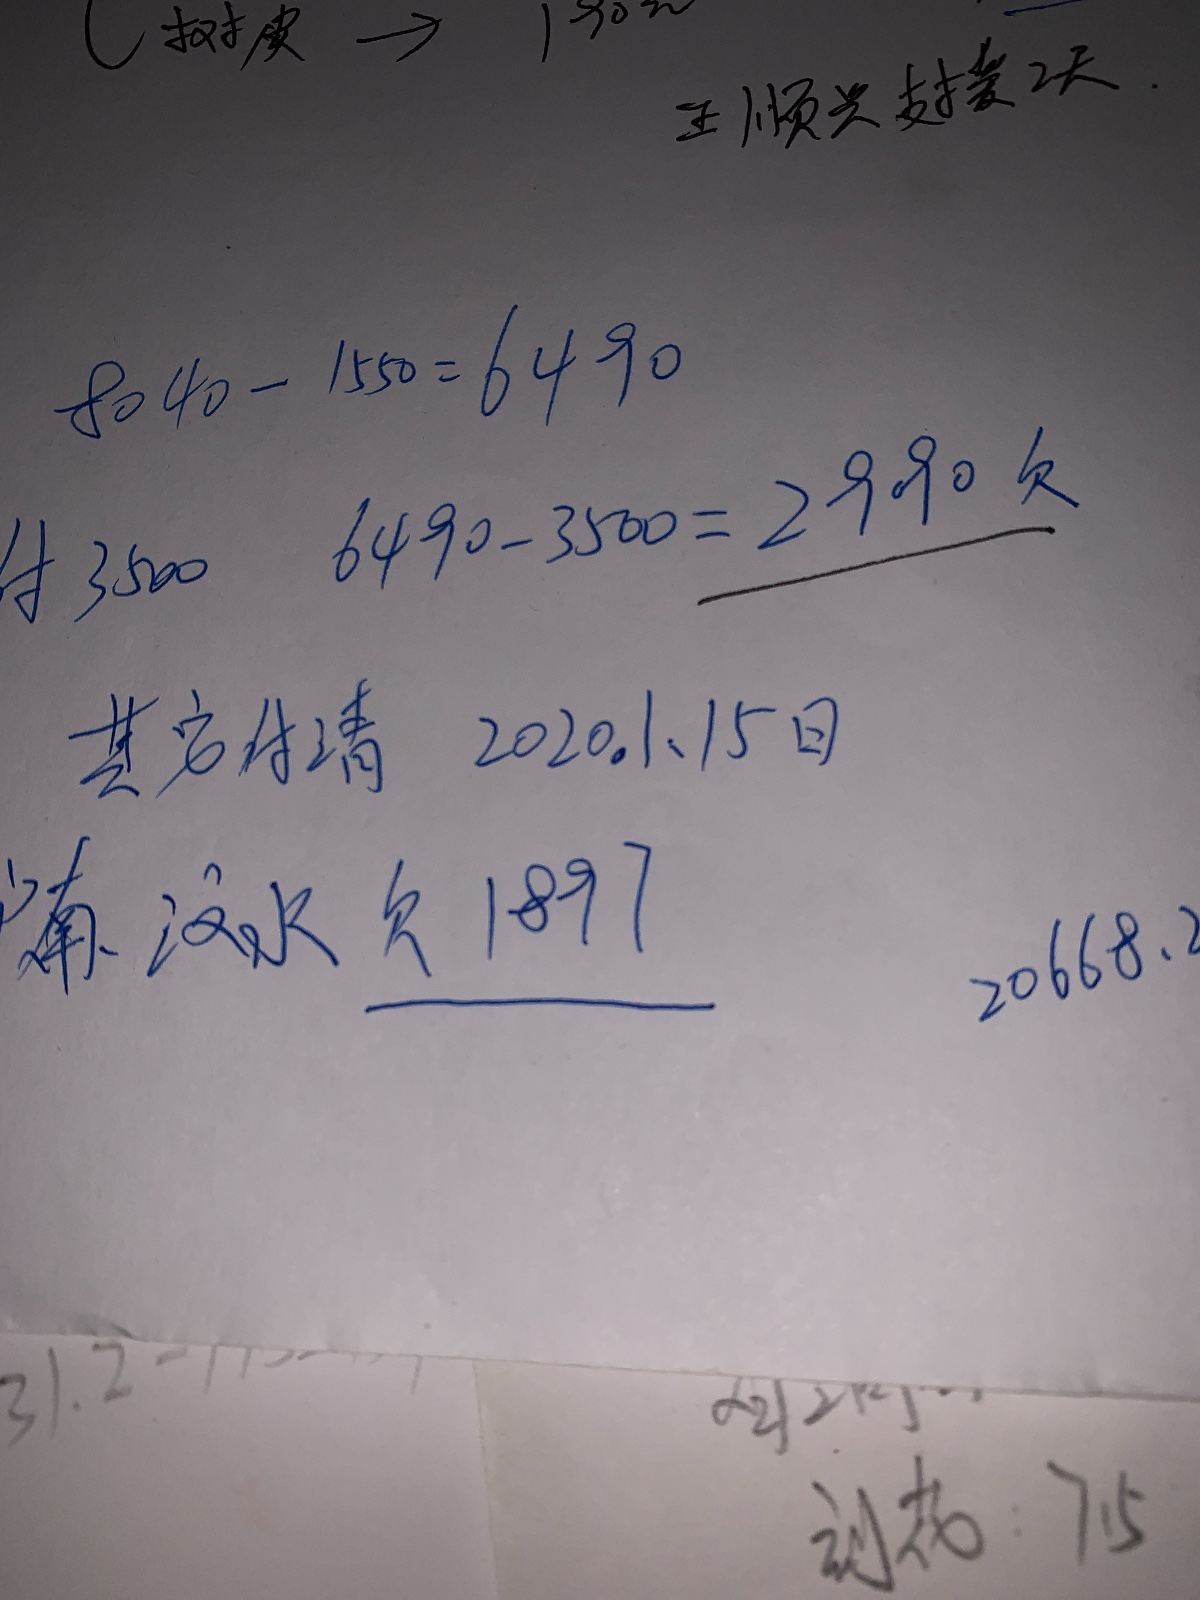 树皮 → 190元
王顺兴 2天.
8040-1550=6490
付3500 6490-3500=2990欠
其它付清 2020.1.15日
南 汶水 欠1897
20668.2
31.2-
: 75